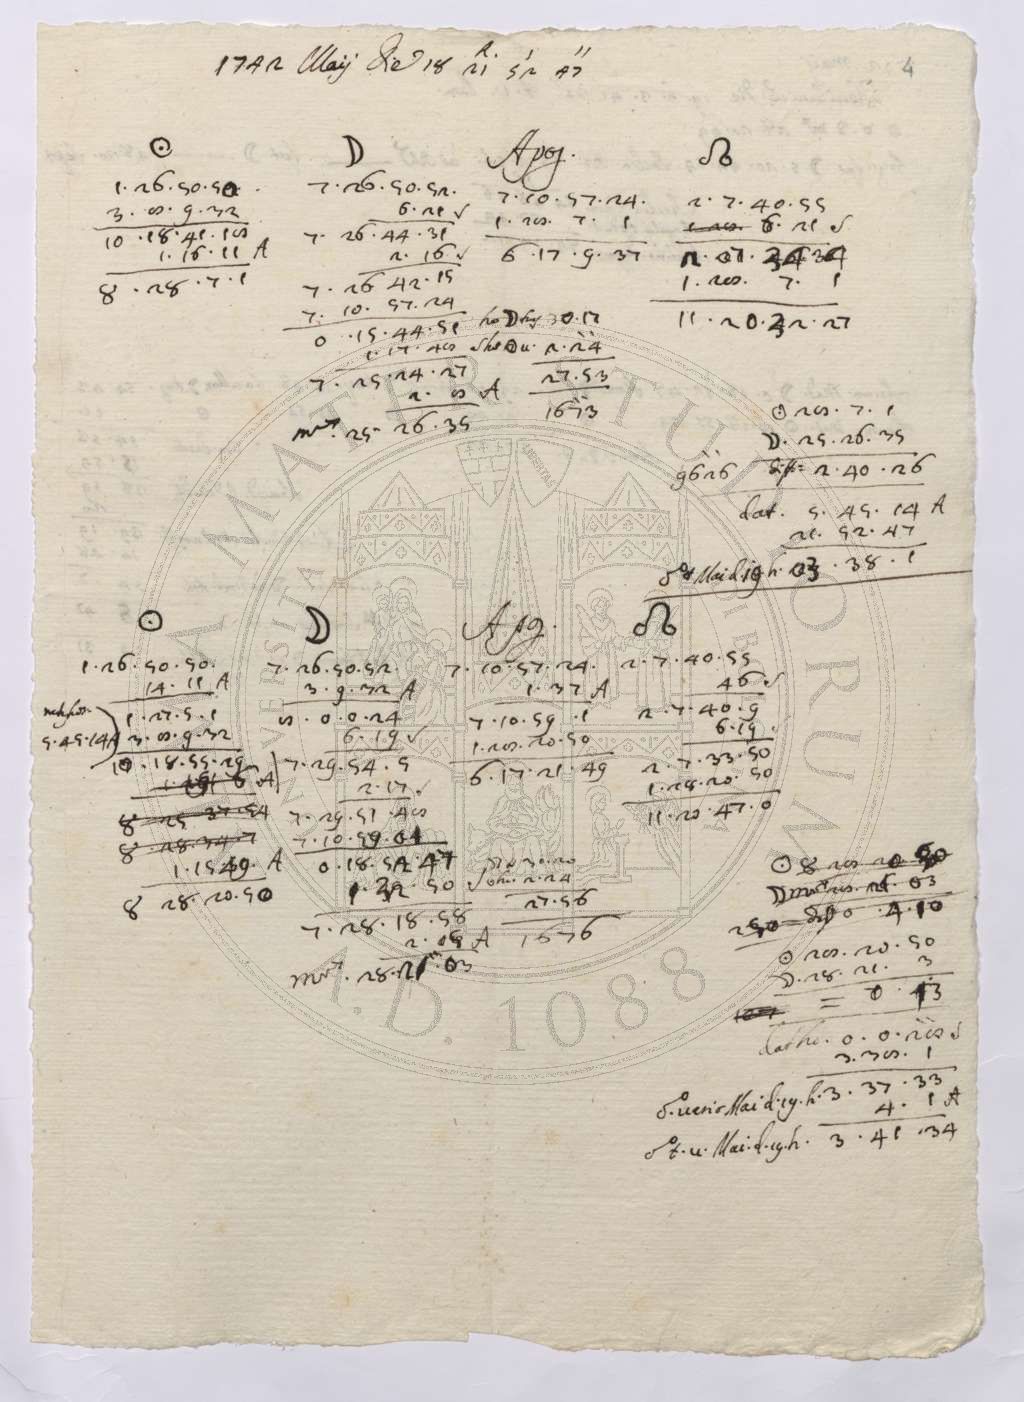 4
1742 Maij die 18 21 52 47
☉
1.26.50.50
3.8.9.32
10.18.41.18
1.16.11 A
8.28.7.1
☽
7.26.50.52
6.21
7.26.44.31
2.16
7.26.42.15
7.10.57.24
0.15.44.51
1.17.48
7.25.24.27
2.8 A
25.26.35
Apog.
7.10.57.24.
1.28.7.1
6.17.9.37
30.17
2.24
27.53
1673
☊
2.7.40.55
6.21
2.7.34.34
1.28.7.1
11.20.32.27
☉ 28.7.1
☽.25.26.35
9626 diff= 2.40.26
dat. 5.45.14 A
21.52.47
Mai d.19 h. 03.38.1
☉
1.26.50.50.
14.11 A
1.27.5.1
5.45.14 A 3.8.9.32
10.18.55.29
1.15.49. A
8 28.20.50
☽
7.26.50.52.
3.9.32 A
8.0.0.24
6.19
7.29.54.5
2.17
7.29.51.48
7.10.59.01
0.18.52.47
1.32.50
7.28.18.58
2.05 A
28.21.03
Apog.
7.10.57.24.
1.37 A
7.10.59.1
1.28.20.50
6.17.21.49
30.20
2.24
27.56
1676
☊
2.7.40.55
46
2.7.40.9
6.19
2.7.33.50
1.28.20.50
11.20.47.0
☉ 28.20.50
☽.28.21.3
= 0.13
dat ho. 0.0.28
3.38.1
Mai d.19.h.3.37.33
4.1 A
☍ t.u. Mai.d.19.h. 3.41.34
ALMA MATER STUDIORUM
A.D. 1088